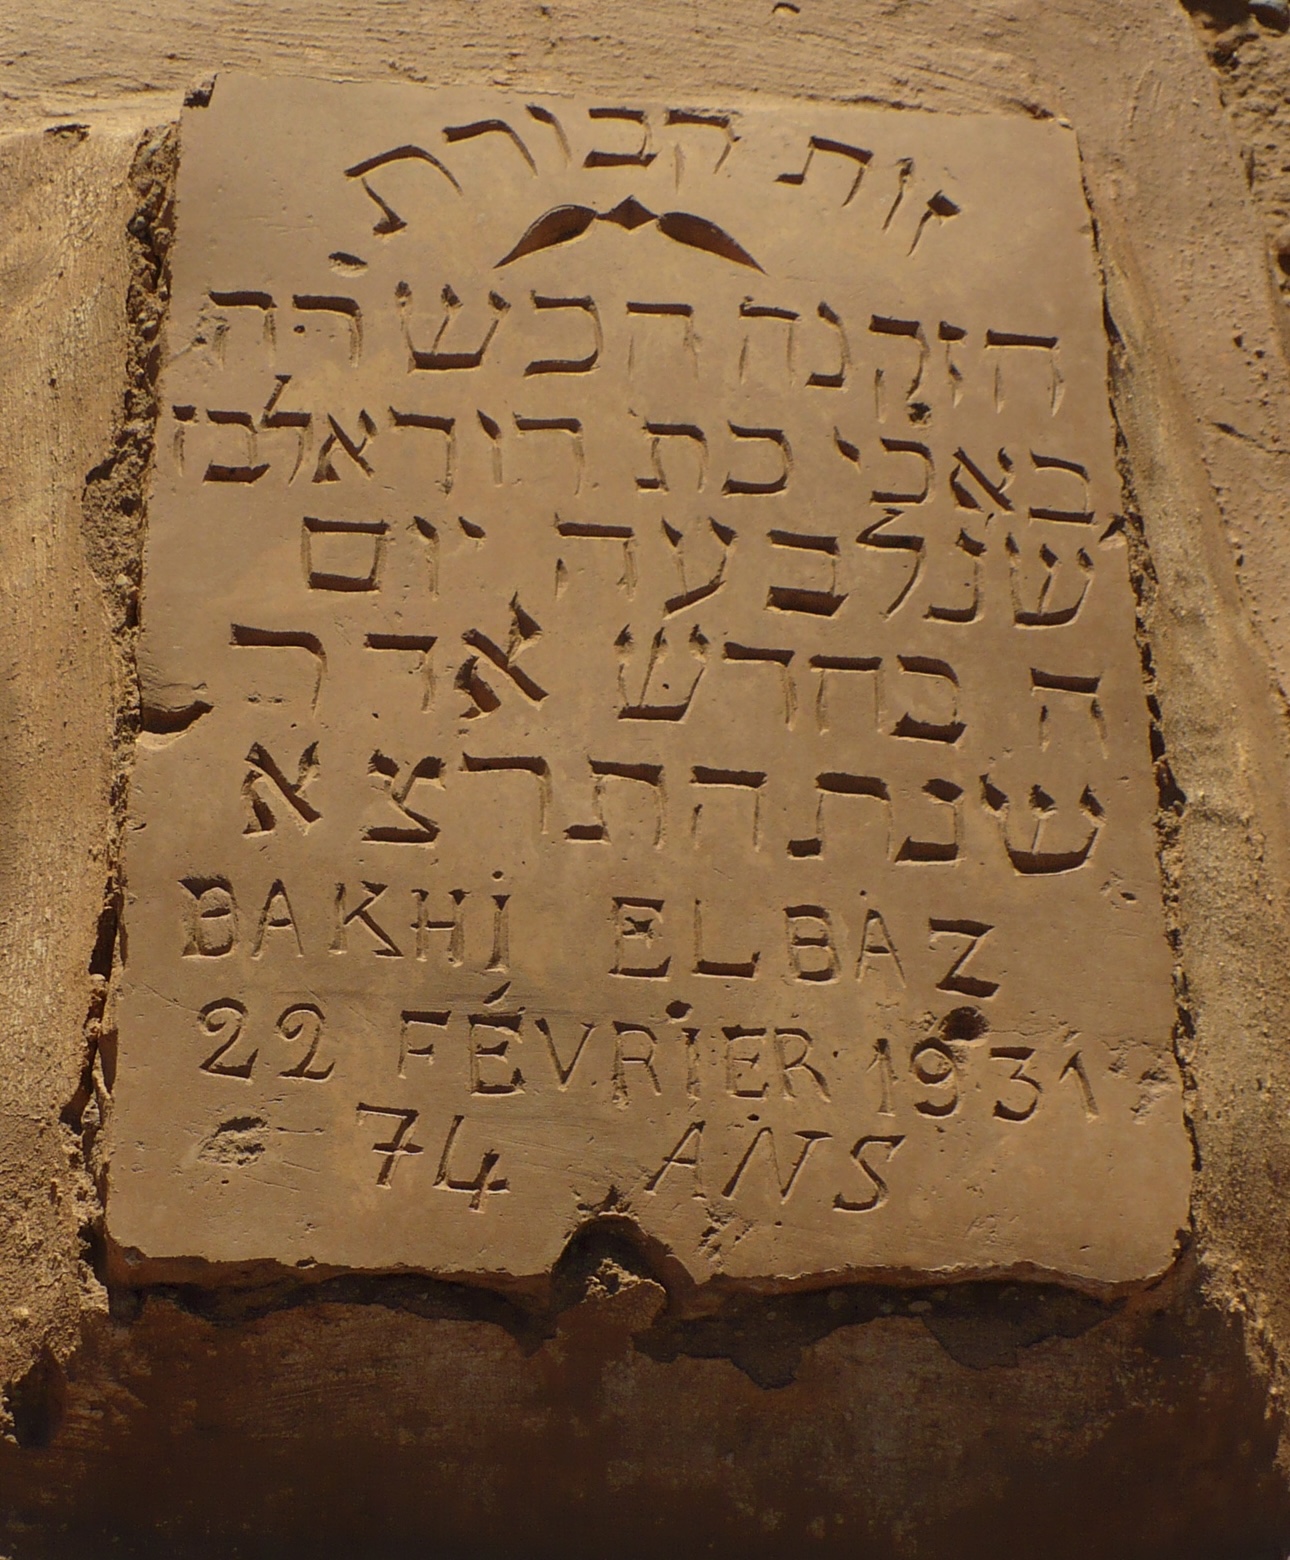 זות קבורת
הזקנה הכשרה
באכי בת דוד אלבז
שנלבעה יום
ה בחדש אדר
שנת התרצא
BAKHI ELBAZ
22 FÉVRIER 1931
74 ANS